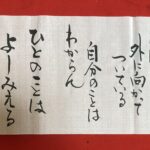 外に向かって
ついている
自分のことは
わからん
ひとのことは
よーみえる